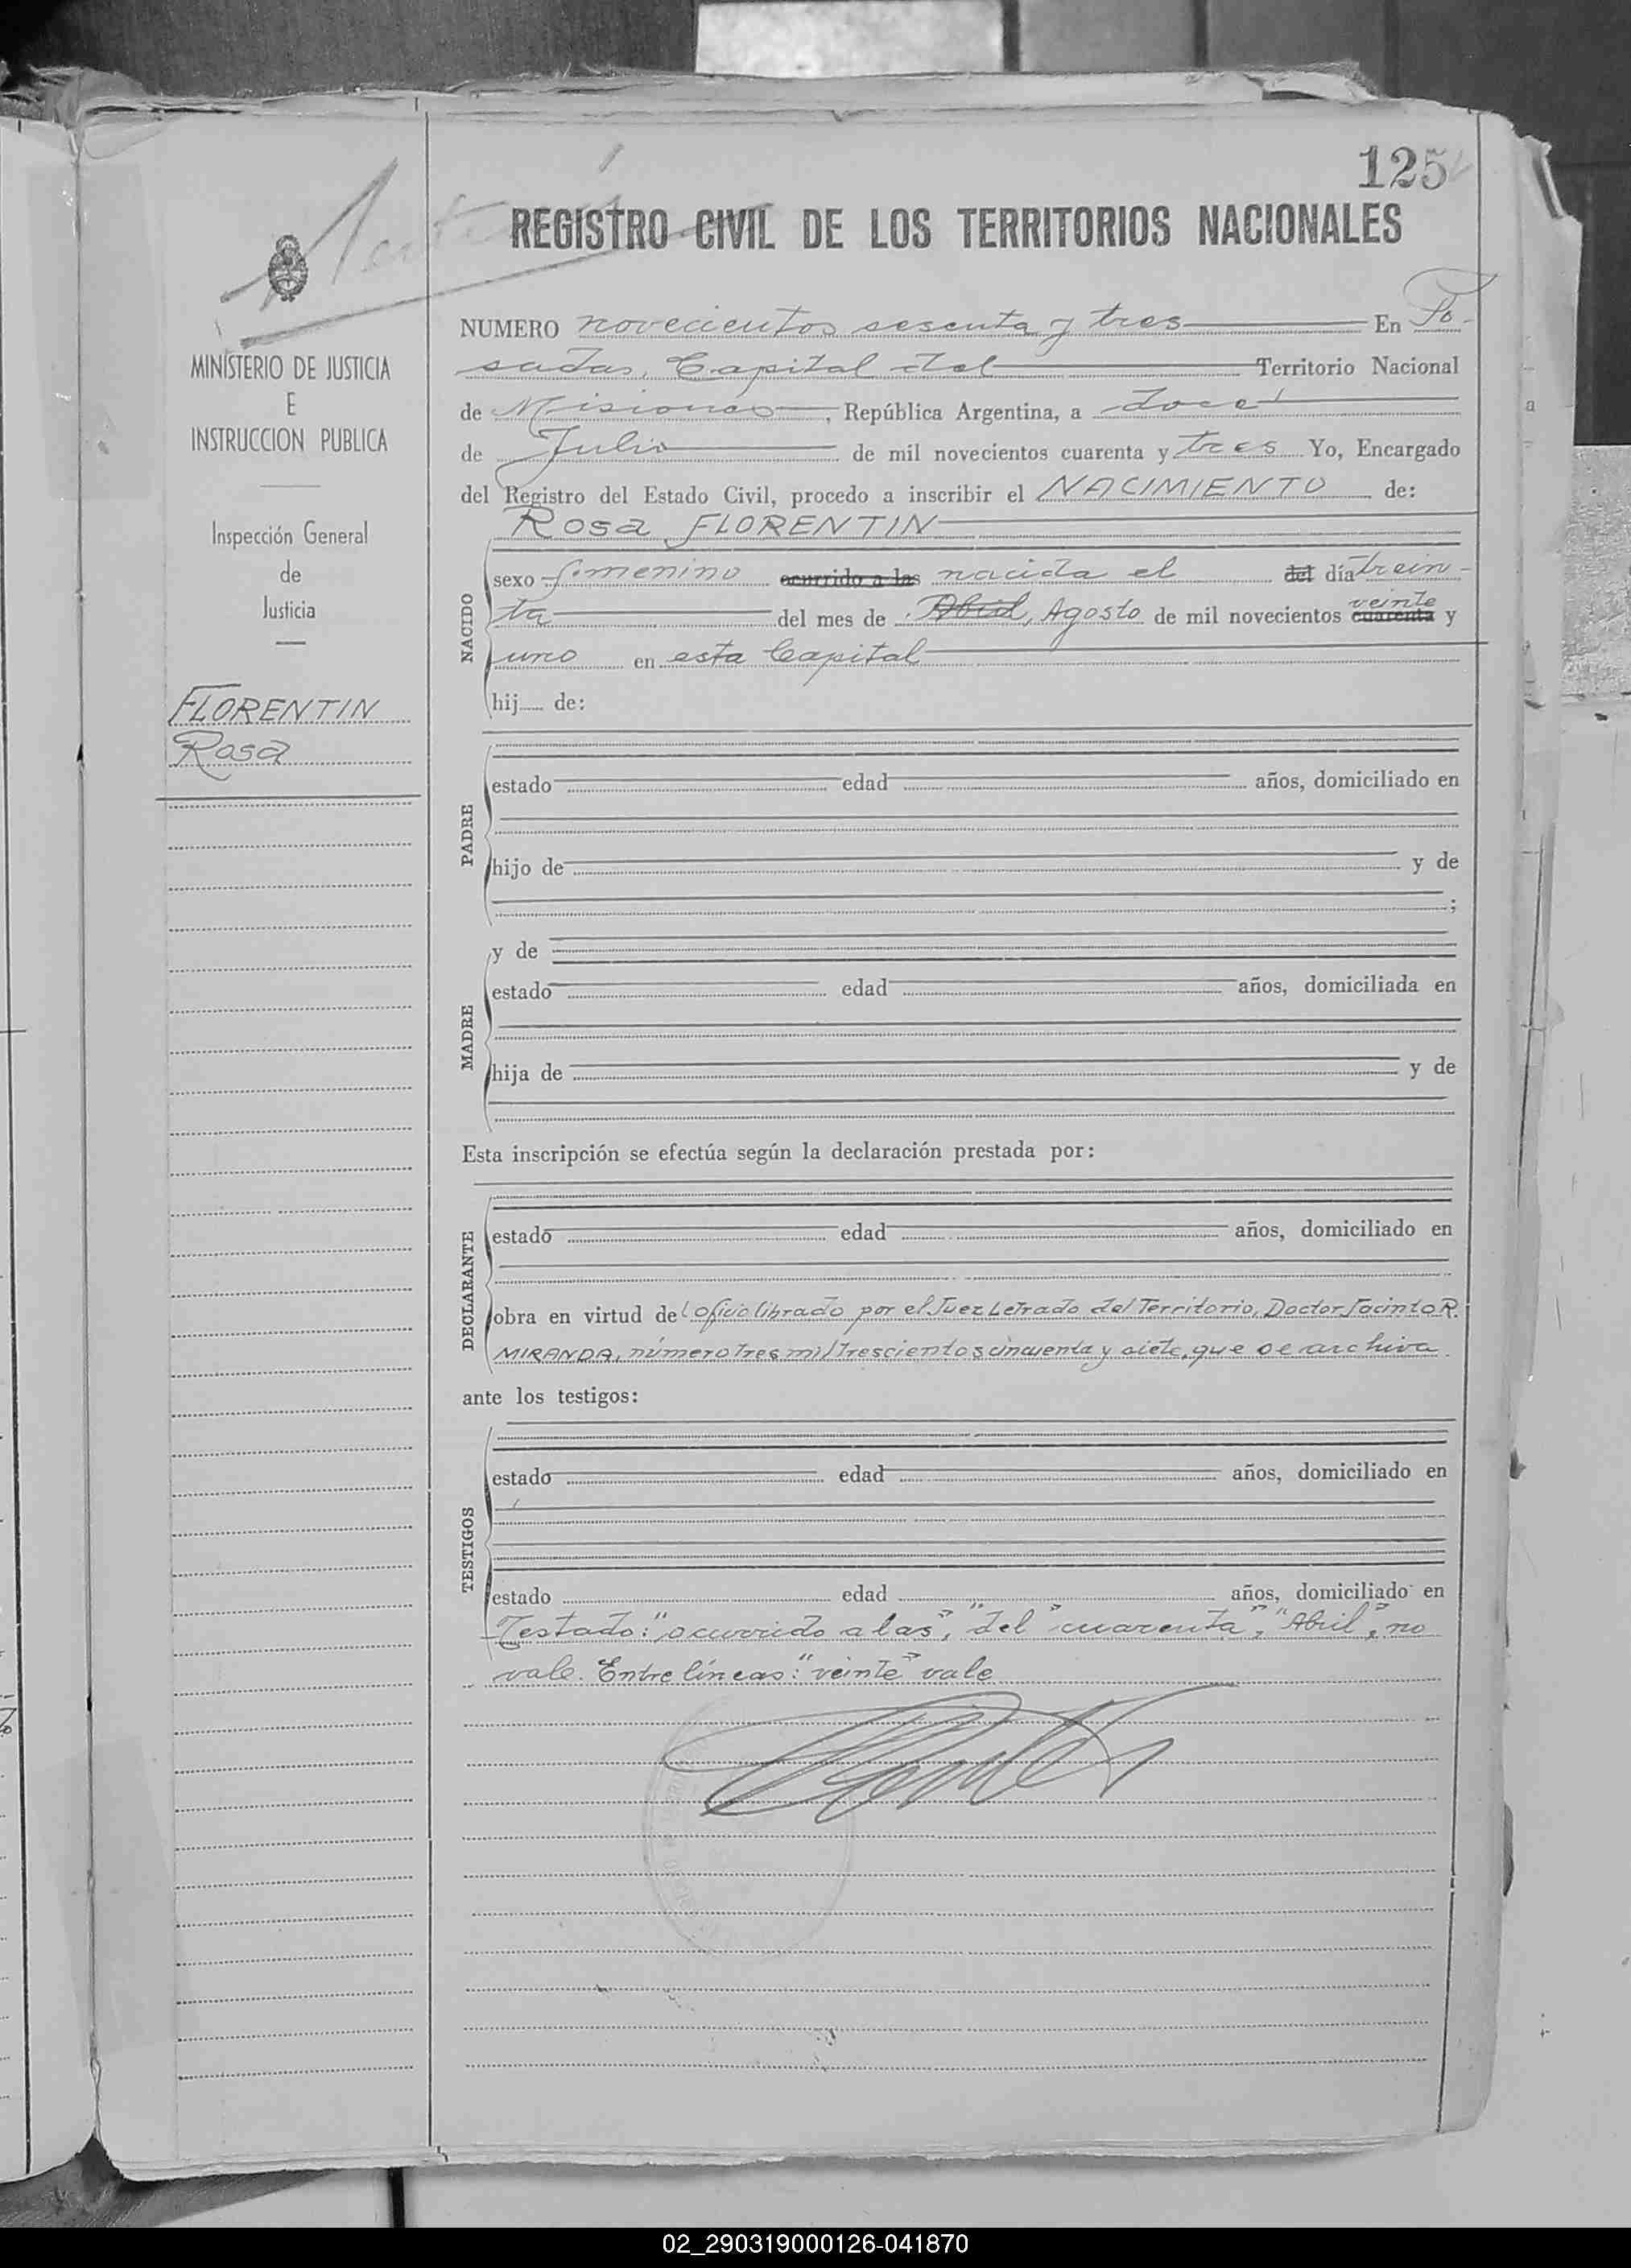 125
REGISTRO CIVIL DE LOS TERRITORIOS NACIONALES
MINISTERIO DE JUSTICIA
E
INSTRUCCION PUBLICA
Inspección General
de
Justicia
FLORENTIN
Rosa
NUMERO novecientos sesenta y tres En Po-
sadas, Capital del Territorio Nacional
de Misiones, República Argentina, a doce
de Julio de mil novecientos cuarenta y tres Yo, Encargado
del Registro del Estado Civil, procedo a inscribir el NACIMIENTO de:
NACIDO
Rosa FLORENTIN
sexo femenino ocurrido a las nacida el del día trein-
ta del mes de Abril, Agosto de mil novecientos cuarenta veinte y
uno en esta Capital
hij de:
PADRE
estado edad años, domiciliado en
hijo de y de
;
MADRE
y de
estado edad años, domiciliada en
hija de y de
Esta inscripción se efectúa según la declaración prestada por:
DECLARANTE
estado edad años, domiciliado en
obra en virtud del oficio librado por el Juez Letrado del Territorio, Doctor Jacinto R.
MIRANDA, número tres mil trescientos cincuenta y siete, que se archiva.
ante los testigos:
TESTIGOS
estado edad años, domiciliado en
estado edad años, domiciliado en
Testado: "ocurrido a las", "del" "cuarenta", "Abril", no
vale. Entre líneas: "veinte" vale
02_290319000126-041870